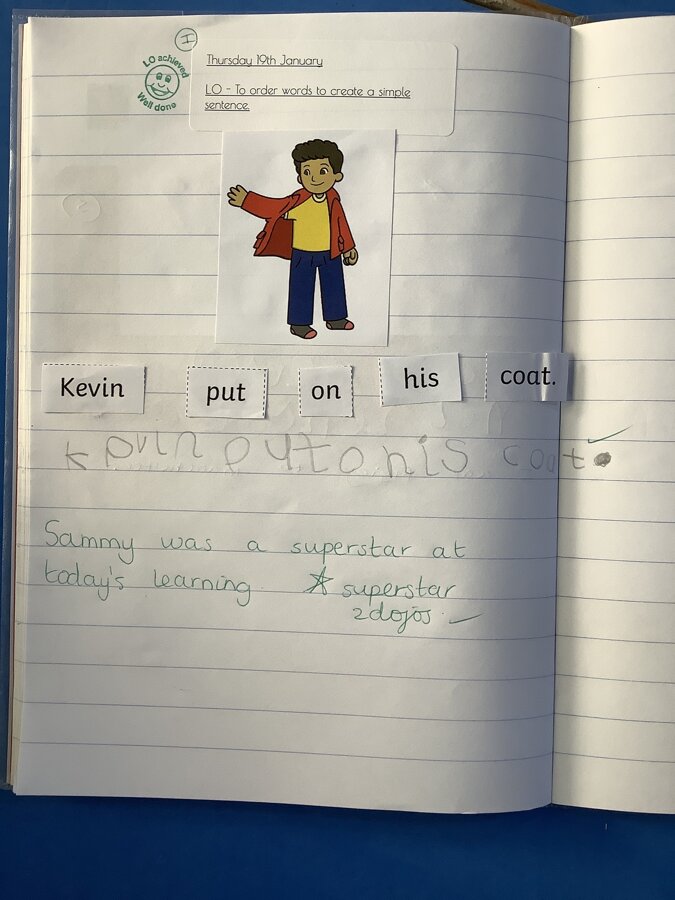 I
LO achieved
Well done
Thursday 19th January
LO - To order words to create a simple
sentence.
Kevin put on his coat.
kevin putohis coat.
Sammy was a superstar at
today's learning superstar
2dojos